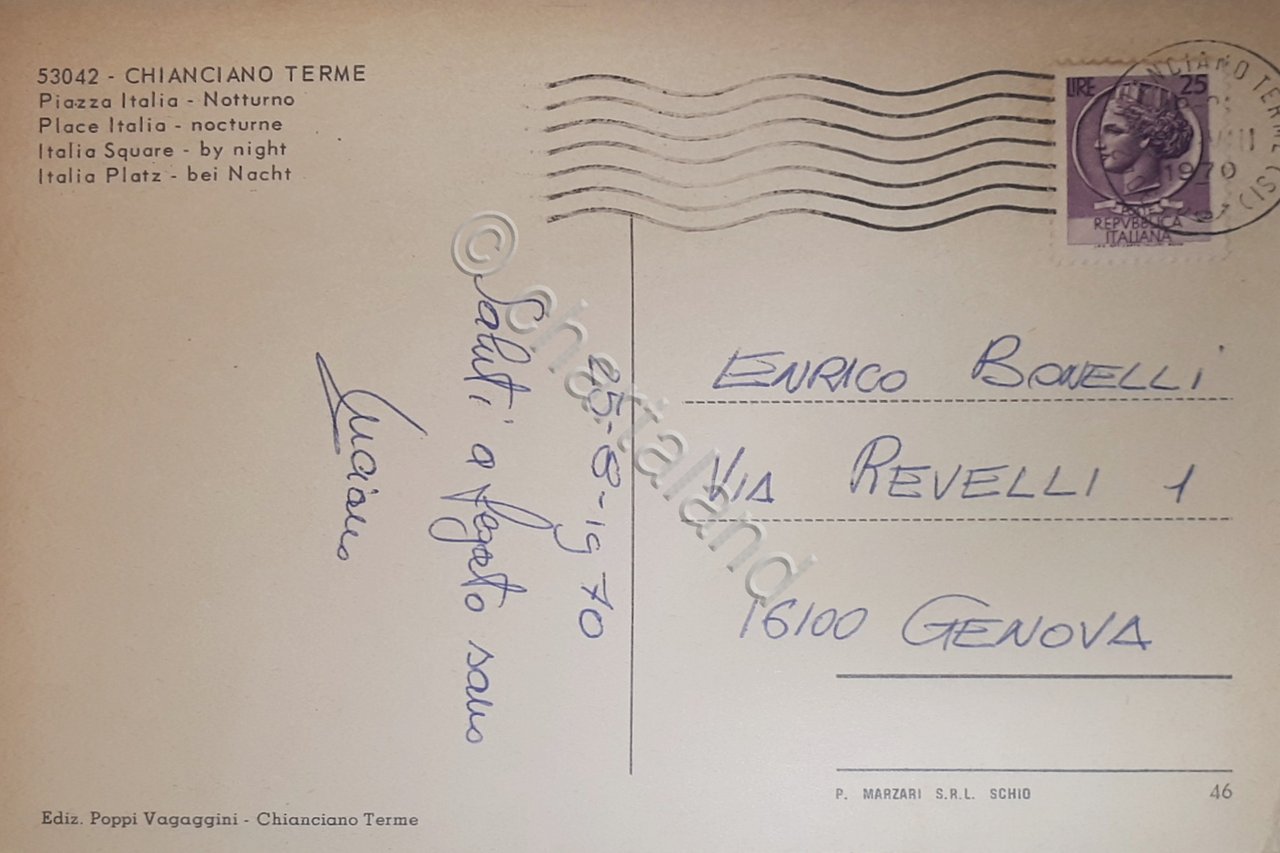 53042 - CHIANCIANO TERME
Piazza Italia - Notturno
Place Italia - nocturne
Italia Square - by night
Italia Platz - bei Nacht
LIRE 25
POSTE
REPVBBLICA
ITALIANA
CIANO TERME (SI)
1970
25-8-1970
Saluti a fegato sano
Luciano
ENRICO BONELLI
VIA REVELLI 1
16100 GENOVA
P. MARZARI S.R.L. SCHIO
46
Ediz. Poppi Vagaggini - Chianciano Terme
© chartaland